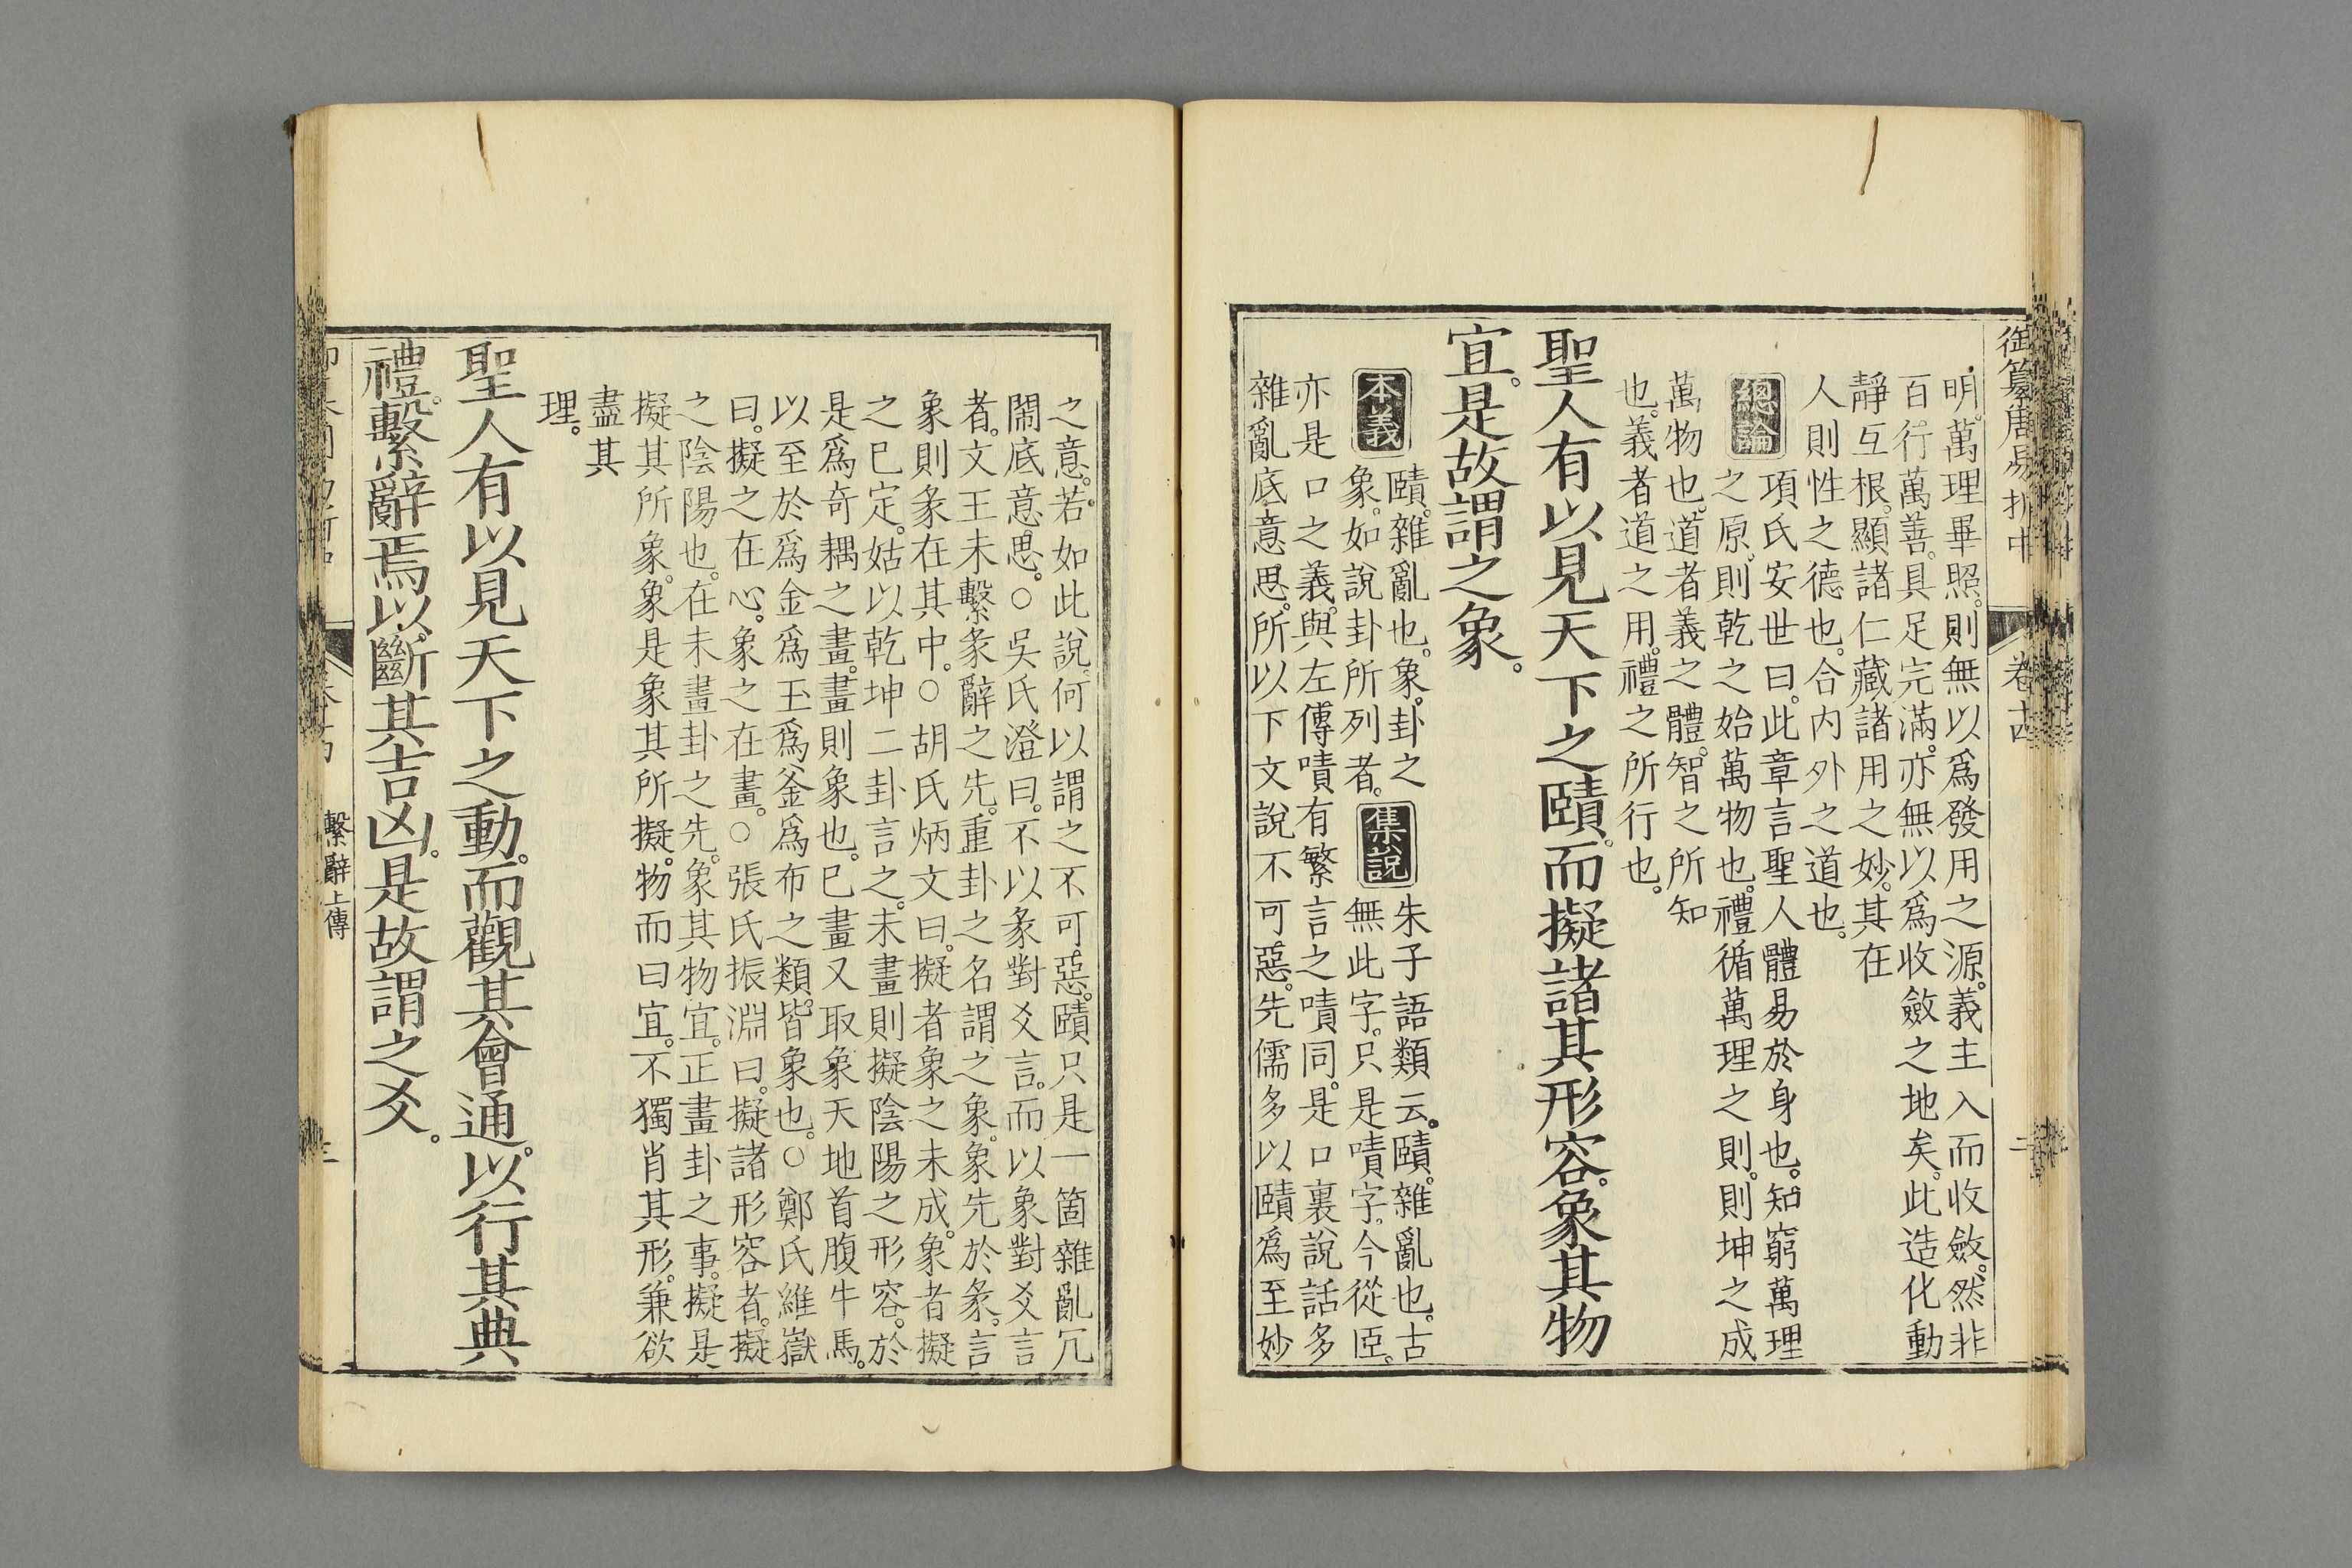 御纂周易折中
卷十四
二
明。萬理畢照。則無以爲發用之源。義主入而收斂。然非
百行。萬善。具足完滿。亦無以爲收斂之地矣。此造化動
靜互根。顯諸仁藏諸用之妙。其在
人則性之德也。合內外之道也。
總論
項氏安世曰。此章言聖人體易於身也。知窮萬理
之原。則乾之始萬物也。禮循萬理之則。則坤之成
萬物也。道者義之體。智之所知
也。義者道之用。禮之所行也。
聖人有以見天下之賾。而擬諸其形容。象其物
宜。是故謂之象。
本義
賾。雜亂也。象。卦之
象。如說卦所列者。
集說
朱子語類云。賾。雜亂也。古
無此字。只是嘖字。今從𦣞。
亦是口之義。與左傳嘖有繁言之嘖同。是口裏說話多
雜亂底意思。所以下文說不可惡。先儒多以賾爲至妙
之意。若如此說。何以謂之不可惡。賾只是一箇雜亂冗
鬧底意思。○吳氏澄曰。不以彖對爻言。而以象對爻言
者。文王未繫彖辭之先。重卦之名謂之象。象先於彖。言
象則彖在其中。○胡氏炳文曰。擬者象之未成。象者擬
之已定。姑以乾坤二卦言之。未畫則擬陰陽之形容。於
是爲奇耦之畫。畫則象也。已畫又取象天地首腹牛馬。
以至於爲金爲玉爲釜爲布之類。皆象也。○鄭氏維嶽
曰。擬之在心。象之在畫。○張氏振淵曰。擬諸形容者。擬
之陰陽也。在未畫卦之先。象其物宜。正畫卦之事。擬是
擬其所象。象是象其所擬。物而曰宜。不獨肖其形。兼欲
盡其
理。
聖人有以見天下之動。而觀其會通。以行其典
禮。繫辭焉以斷其吉凶。是故謂之爻。
繫辭上傳